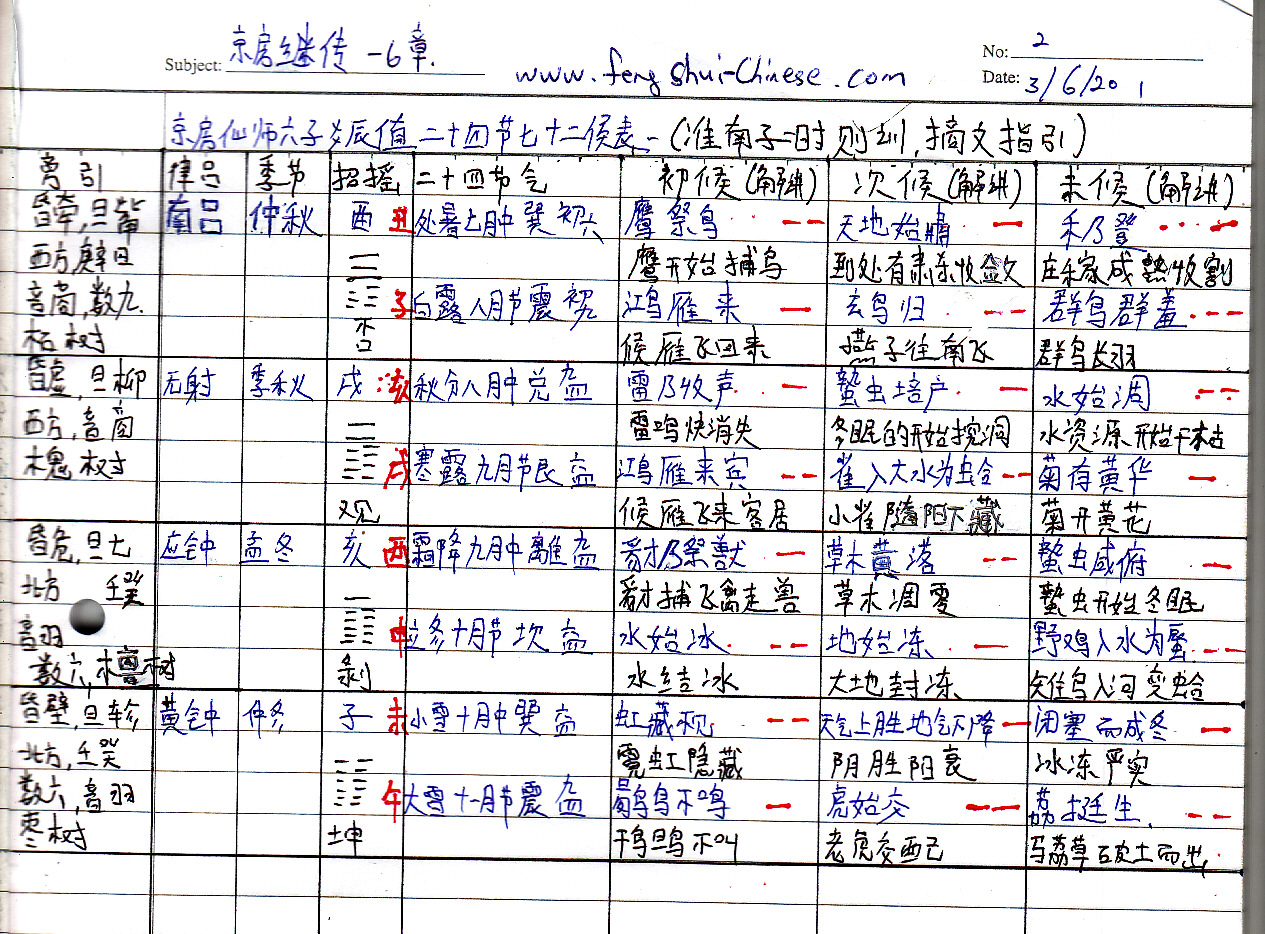 Subject: 京房继传 -6章.
www.fengshui-Chinese.com
No: 2
Date: 3/6/201
京房仙师六子爻辰值二十四节七十二候表-(淮南子-时则训,摘文指引)
离引 律吕 季节 招摇 二十四节气 初候(解讲) 次候(解讲) 末候(解讲)
昏牵,旦觜 南吕 仲秋 酉 丑 处暑七月中巽初六 鹰祭鸟 天地始肃 禾乃登
西方,庚日 鹰开始捕鸟 到处有肃杀收敛 庄禾家成熟收割
音商,数九. 子 白露八月节震初九 鸿雁来 玄鸟归 群鸟群羞
柘树 否 候雁飞回来 燕子往南飞 群鸟长羽
昏虚,旦柳 无射 季秋 戌 亥 秋分八月中兑九四 雷乃收声 蛰虫培户 水始涸
西方,音商 雷鸣快消失 冬眠的开始挖洞 水资源开始干枯
木槐树 戌 寒露九月节艮六四 鸿雁来宾 雀入大水为蛤 菊有黄华
观 候雁飞来客居 小雀随阳下藏 菊开黄花
昏危,旦七 应钟 孟冬 亥 酉 霜降九月中離九四 豺乃祭獸 草木黄落 蟄虫咸俯
北方 壬癸 豺捕飞禽走兽 草木凋零 蟄虫开始冬眠
音羽 申 立冬十月节坎六四 水始冰 地始冻 野鸡入水为蜃
数六,木檀树 剥 水结冰 大地封冻 雉鸟入河变蛤
昏壁,旦轸 黄钟 仲冬 子 未 小雪十月中巽六四 虹藏不见 天气上腾地气下降 闭塞而成冬
北方,壬癸 霓虹隐藏 阴胜阳衰 冰冻严实
数六,音羽 午 大雪十一月节震九四 鹖鸟不鸣 虎始交 荔挺生.
枣树 坤 鹖鸟不叫 老虎交配 马荔草破土而出